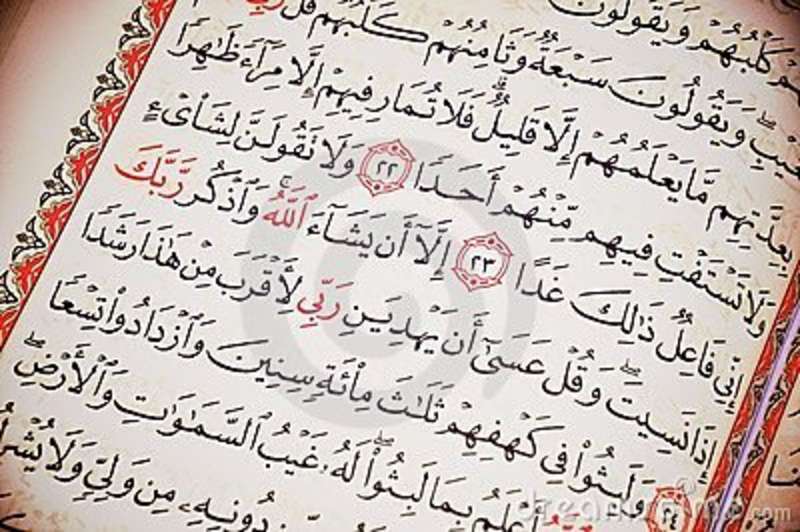 كَلْبُهُمْ وَيَقُولُونَ
وَيَقُولُونَ سَبْعَةٌ وَثَامِنُهُمْ كَلْبُهُمْ قُل
بِعِدَّتِهِم مَّا يَعْلَمُهُمْ إِلَّا قَلِيلٌ فَلَا تُمَارِ فِيهِمْ إِلَّا مِرَآءً ظَٰهِرًا
وَلَا تَسْتَفْتِ فِيهِم مِّنْهُمْ أَحَدًا ٢٢ وَلَا تَقُولَنَّ لِشَا۟ىْءٍ
إِنِّى فَاعِلٌ ذَٰلِكَ غَدًا ٢٣ إِلَّآ أَن يَشَآءَ ٱللَّهُ ۚ وَٱذْكُر رَّبَّكَ
إِذَا نَسِيتَ وَقُلْ عَسَىٰٓ أَن يَهْدِيَنِ رَبِّى لِأَقْرَبَ مِنْ هَٰذَا رَشَدًا
وَلَبِثُوا۟ فِى كَهْفِهِمْ ثَلَٰثَ مِا۟ئَةٍ سِنِينَ وَٱزْدَادُوا۟ تِسْعًا
بِمَا لَبِثُوا۟ ۖ لَهُۥ غَيْبُ ٱلسَّمَٰوَٰتِ وَٱلْأَرْضِ ۖ
دُونِهِۦ مِن وَلِىٍّ وَلَا